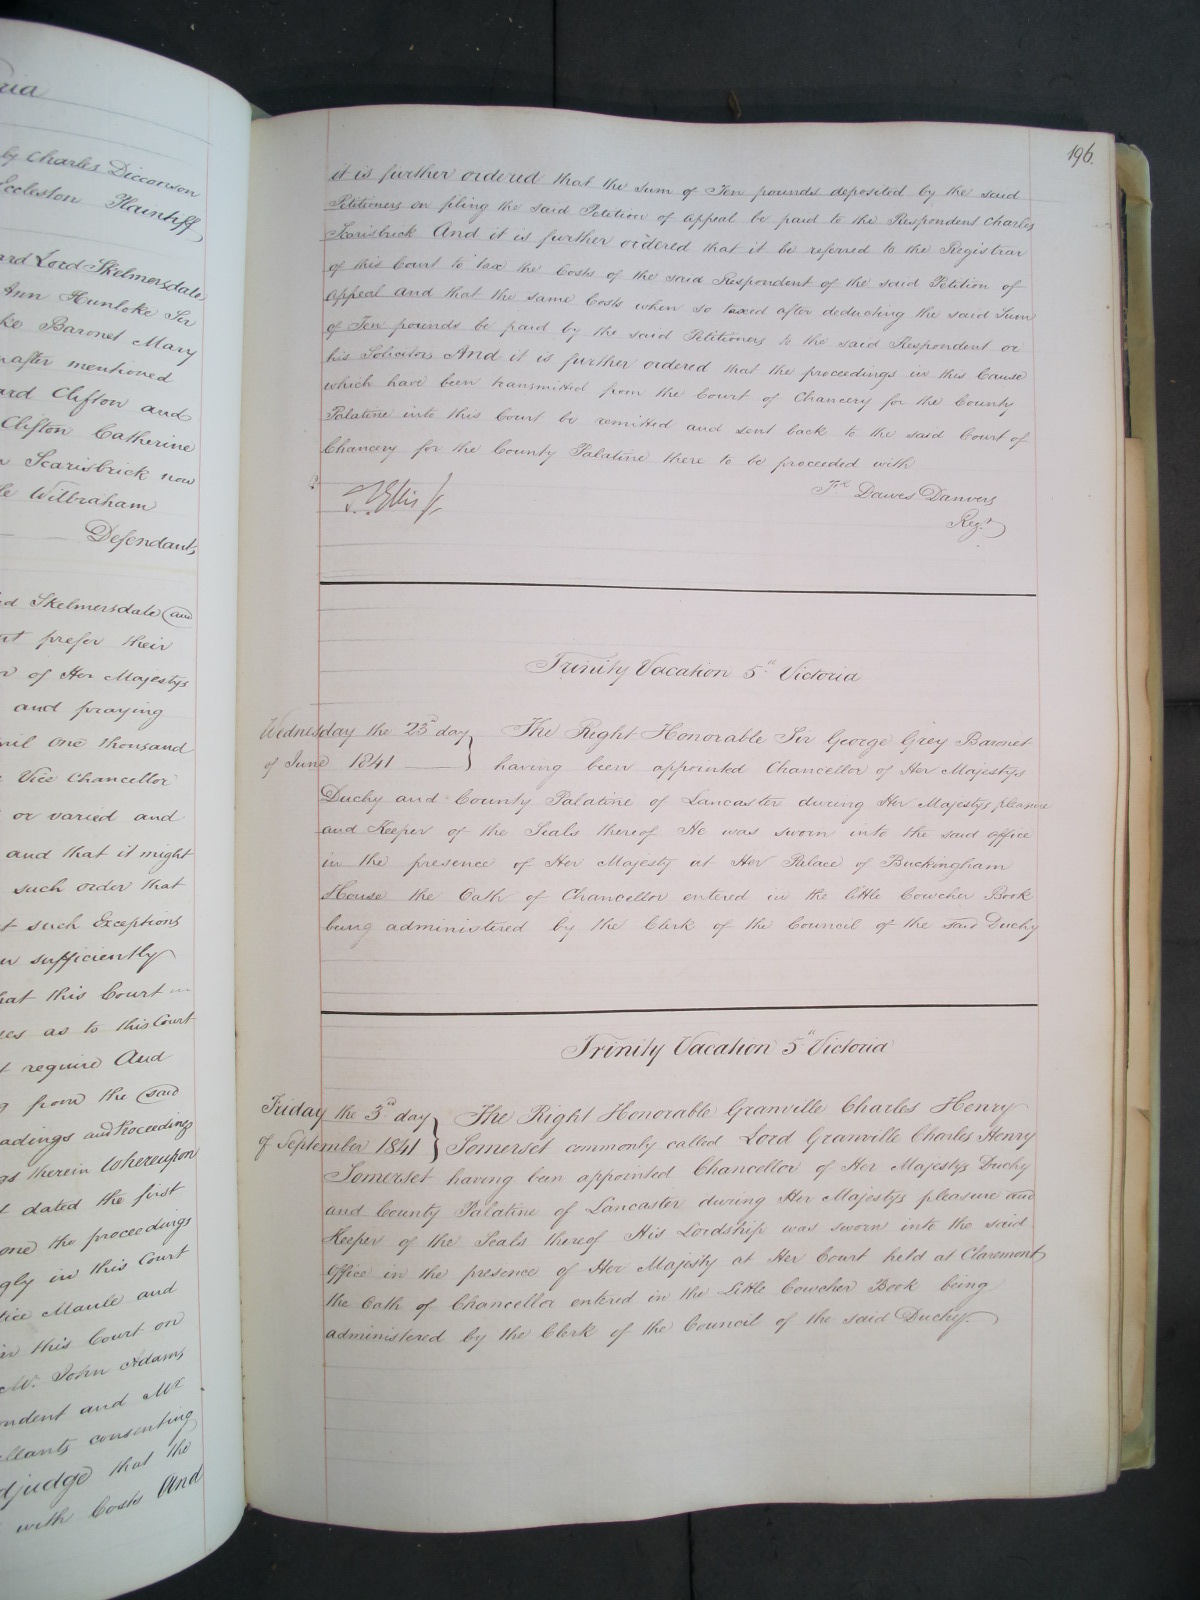 ria
by Charles Dicconson
Eccleston Plaintiff
ard Lord Skelmersdale
Ann Hunloke Sir
ke Baronet Mary
nafter mentioned
ard Clifton and
Clifton Catherine
Scarisbrick now
le Wilbraham
Defendants
d Skelmersdale and
prefer their
of Her Majestys
and praying
ril one thousand
Vice Chancellor
or varied and
and that it might
such order that
t such Exceptions
sufficiently
hat this Court
es as to this Court
t require And
g from the said
adings and Proceedings
gs therein Whereupon
t dated the first
one the proceedings
gly in this Court
tice Maule and
this Court on
Mr. John Adams
ondent and Mr
ellants consenting
djudge that the
with Costs And
196.
it is further ordered that the sum of Ten pounds deposited by the said
Petitioners on filing the said Petition of appeal be paid to the Respondent Charles
Scarisbrick And it is further ordered that it be referred to the Registrar
of this Court to tax the Costs of the said Respondent of the said Petition of
Appeal and that the same Costs when so taxed after deducting the said Sum
of Ten pounds be paid by the said Petitioners to the said Respondent or
his Solicitor And it is further ordered that the proceedings in this Cause
which have been transmitted from the Court of Chancery for the County
Palatine into this Court be remitted and sent back to the said Court of
Chancery for the County Palatine there to be proceeded with
T. Ellis Jr
Dawes Danvers
Regr
Trinity Vacation 5th Victoria
Wednesday the 23d day } The Right Honorable Sir George Grey Baronet
of June 1841 — having been appointed Chancellor of Her Majestys
Duchy and County Palatine of Lancaster during Her Majestys pleasure
and Keeper of the Seals thereof He was sworn into the said office
in the presence of Her Majesty at Her Palace of Buckingham
House the Oath of Chancellor entered in the little Cowcher Book
being administered by the Clerk of the Council of the said Duchy
Trinity Vacation 5th Victoria
Friday the 3rd day } The Right Honorable Granville Charles Henry
of September 1841 } Somerset commonly called Lord Granville Charles Henry
Somerset having been appointed Chancellor of Her Majestys Duchy
and County Palatine of Lancaster during Her Majestys pleasure and
Keeper of the Seals thereof His Lordship was sworn into the said
Office in the presence of Her Majesty at Her Court held at Claremont
the Oath of Chancellor entered in the Little Cowcher Book being
administered by the Clerk of the Council of the said Duchy.